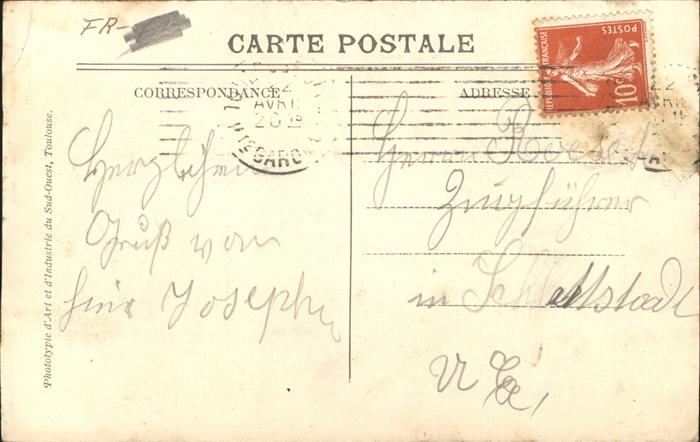 FR-
CARTE POSTALE
CORRESPONDANCE
ADRESSE
REPUBLIQUE FRANÇAISE
POSTES
10c
AVRIL
20 15
Hte GARONNE
Herzlichen
Gruß von
hier Joseph
Herrn
Zugführer
in Schlettstadt
U. E.
Phototypie d'Art et d'Industrie du Sud-Ouest, Toulouse.